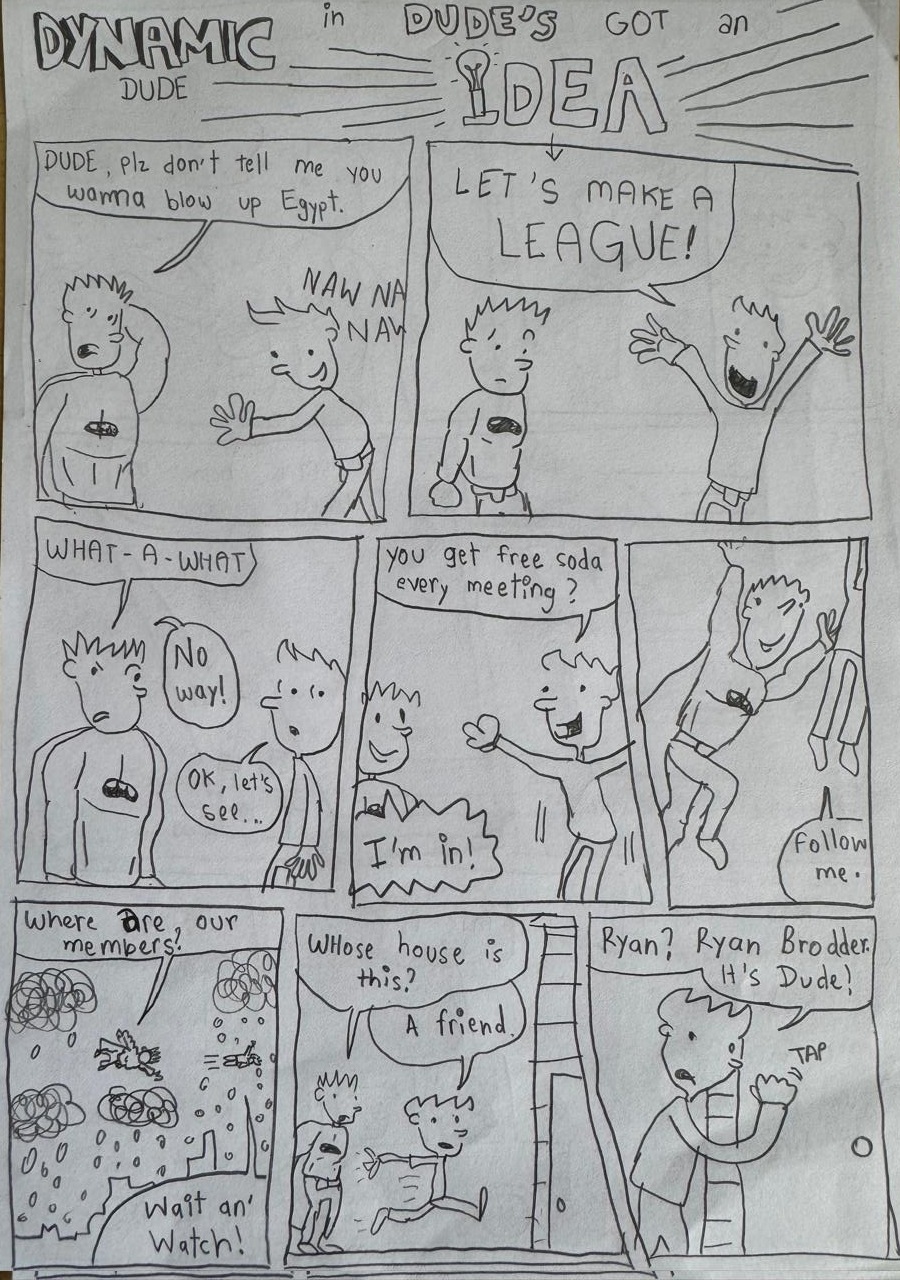 DYNAMIC in DUDE'S GOT an
DUDE IDEA
DUDE, plz don't tell me you
wanna blow up Egypt.
NAW NA
NAW
LET'S MAKE A
LEAGUE!
WHAT-A-WHAT
No
way!
OK, let's
see...
you get free soda
every meeting?
I'm in!
Follow
me.
Where are, our
members?
Wait an'
Watch!
WHose house is
this?
A friend.
Ryan? Ryan Brodder.
It's Dude!
TAP